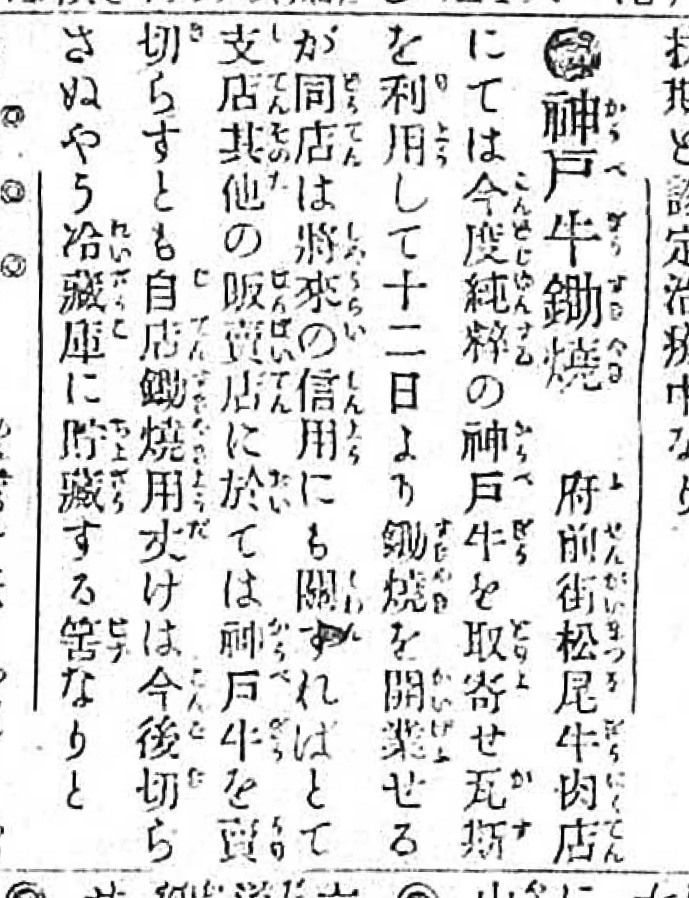 神戸牛鋤焼 府前街松尾牛肉店
にては今度純粹の神戸牛を取寄せ瓦斯
を利用して十二日より鋤焼を開業せる
が同店は將來の信用にも關すればとて
支店其他の販賣店に於ては神戸牛を賣
切らすとも自店鋤焼用丈けは今後切ら
さぬやう冷藏庫に貯藏する筈なりと